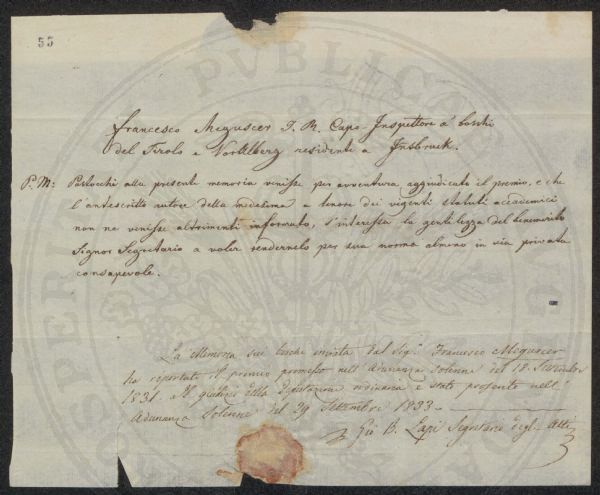 55
Francesco Meguscer I. R. Capo-Inspettore a' boschi
del Tirolo e Vorlelberg residenti a Insbruck.
P. M: Parlocchè alla presenti memoria venisse per avventura aggiudicato il premio, e che
l'antescritto autore della medesima a tenore dei vigenti statuti accademici
non ne venisse altrimenti informato, s'interessa la gentilezza del benemerito
Signor Segretario a voler rendernelo per sua norma almeno in via privata
consapevole.
La Memoria sui boschi inviata dal Sigr. Francesco Meguscer
ha reportato il premio promesso nell'Adunanza Solenne del 18. Settembre
1831. Il giudizio della Deputazione ordinaria è stato presente nell'
Adunanza Solenne del 29 Settembre 1833.
Gio B. Lapi Segretario degli Atti
PVBLICA
PROSPER